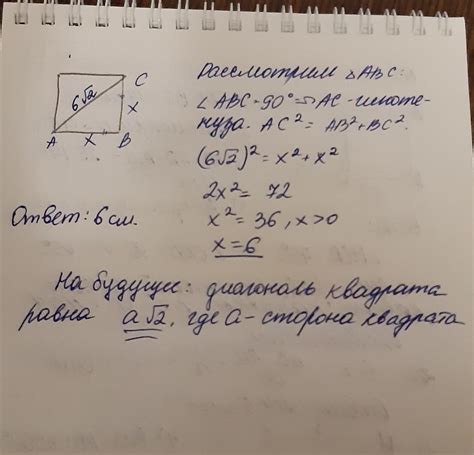 C
6√2
x
A
x
B
Рассмотрим △ABC:
∠ABC=90° ⇒ AC-гипоте-
нуза. AC² = AB²+BC².
(6√2)² = x²+x²
2x² = 72
x² = 36, x>0
x=6
Ответ: 6 см.
На будущее: диагональ квадрата
равна a√2, где a- сторона квадрата